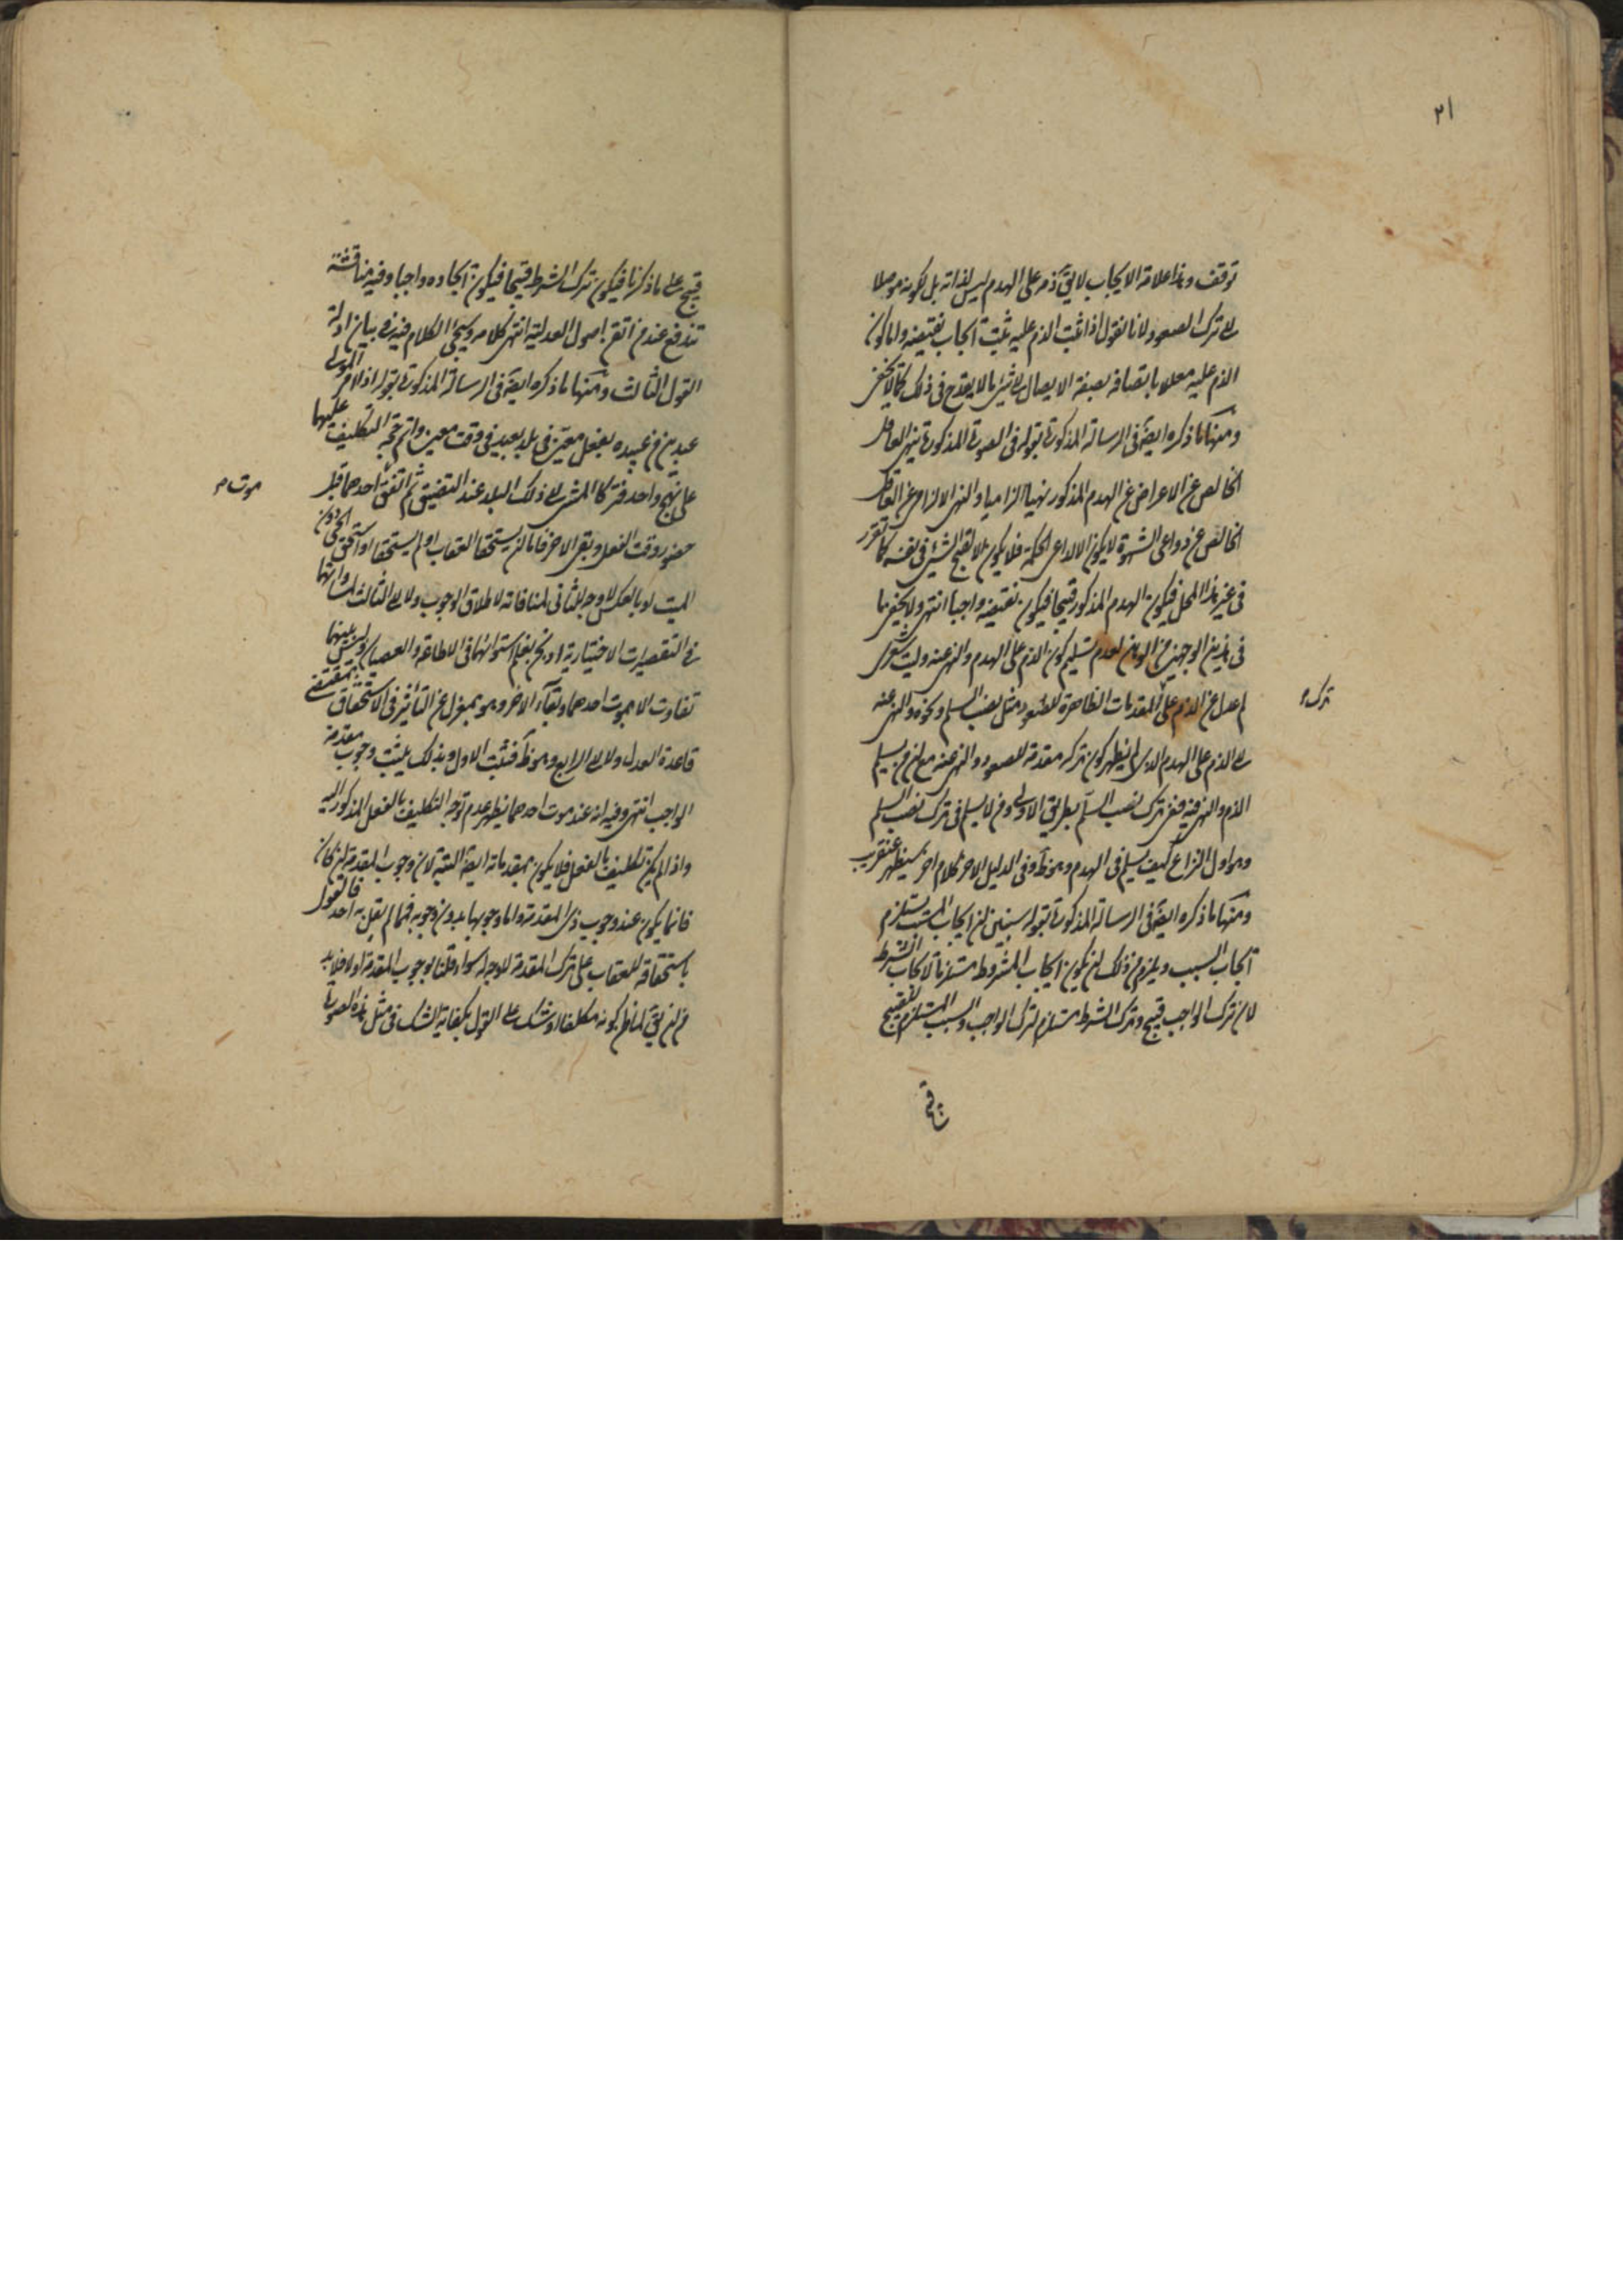 ٢١
توقف وهذا علامة الايجاب لا يق ذمه على الهدم ليس لذاته بل لكونه موصلا
الى ترك الصعود لانا نقول اذا ثبت الذم عليه ثبت ايجاب نقيضه واما كون
الذم عليه معللا باتصافه بصفة الايصال الى شئ ما لا يقدح فى ذلك كما لا يخفى
ومنها ما ذكره ايضا فى الرسالة المذكورة بقوله فى الصورة المذكورة ينهى العاقل
الخالص عن الاعراض عن الهدم المذكور نهيا الزاميا والنهى الالزامى عن العاقل
الخالص عن دواعى الشهوة لا يكون الا لداعى الحكمة فلا يكون الا لقبح الشئ فى نفسه كما تقرر
فى غير هذا المحل فيكون الهدم المذكور قبيحا فيكون نقيضه واجبا انتهى ولا يخفى ما
فى هذين الوجهين من الوهن لعدم تسليم كون الذم على الهدم والنهى عنه وليت شعرى
لم عدل عن الذم على المقدمات الظاهرة للصعود مثل نصب السلم ونحوه والنهى عنه
ترك م
الى الذم على الهدم الذى لم يظهر كون تركه مقدمة للصعود والنهى عنه مع ان من يسلم
الذم والنهى فيه ففى ترك نصب السلم بطريق الاولى ومن لا يسلم فى ترك نصب السلم
وهو اول النزاع كيف يسلم فى الهدم وهو ظ وفى الدليل الاخر كلام اخر سيظهر عنقريب
ومنها ما ذكره ايضا فى الرسالة المذكورة بقوله سنبين ان ايجاب المسبب يستلزم
ايجاب السبب ويلزم من ذلك ان يكون ايجاب المشروط مستلزما لايجاب الشرط
لان ترك الواجب قبيح وترك الشرط مستلزم لترك الواجب والسبب المستلزم للقبيح
قبيح
قبيح على ما ذكرنا فيكون ترك الشرط قبيحا فيكون ايجاده واجبا وفيه مناقشة
تندفع عند من اتقن اصول العدلية انتهى كلامه وسيجئ الكلام فيه فى بيان ادلة
القول الثالث ومنها ما ذكره ايضا فى الرسالة المذكورة بقوله اذا امر المولى
عبدين من عبيده بفعل معين فى بلد بعيد فى وقت معين واتم حجة التكليف عليهما
على نهج واحد فتركا المشى الى ذلك البلد عند التضيق ثم اتفق احدهما قبل
موت م
حضور وقت الفعل وبقى الاخر فاما ان يستحقا العقاب او لم يستحقا او استحق الحى دون
الميت او بالعكس لا وجه للثانى لمنافاته لاطلاق الوجوب ولا الى الثالث لتساويهما
فى التقصيرات الاختيارية اذ نحن نعلم استوائهما فى الاطاعة والعصيان وليس بينهما
تفاوت الا بموت احدهما وبقاء الاخر وهو بمعزل عن التاثير فى الاستحقاق بمقتضى
قاعدة العدل ولا الى الرابع وهو ظ فثبت الاول وبذلك يثبت وجوب مقدمة
الواجب انتهى وفيه انه عند موت احدهما يظهر عدم توجه التكليف بالفعل المذكور اليه
واذا لم يكن تكليف بالفعل فلا يكون بمقدماته ايضا البتة لان وجوب المقدمة ان كان
فانما يكون عند وجوب ذى المقدمة واما وجوبها بدون وجوبه فمما لم يقل به احد فالقول
باستحقاقه للعقاب على ترك المقدمة لا وجه له سواء قلنا بوجوب المقدمة او لا فلا بد
من ان يق لما ظن كونه مكلفا او شك على القول بكفاية الشك فى مثل هذه الصورة